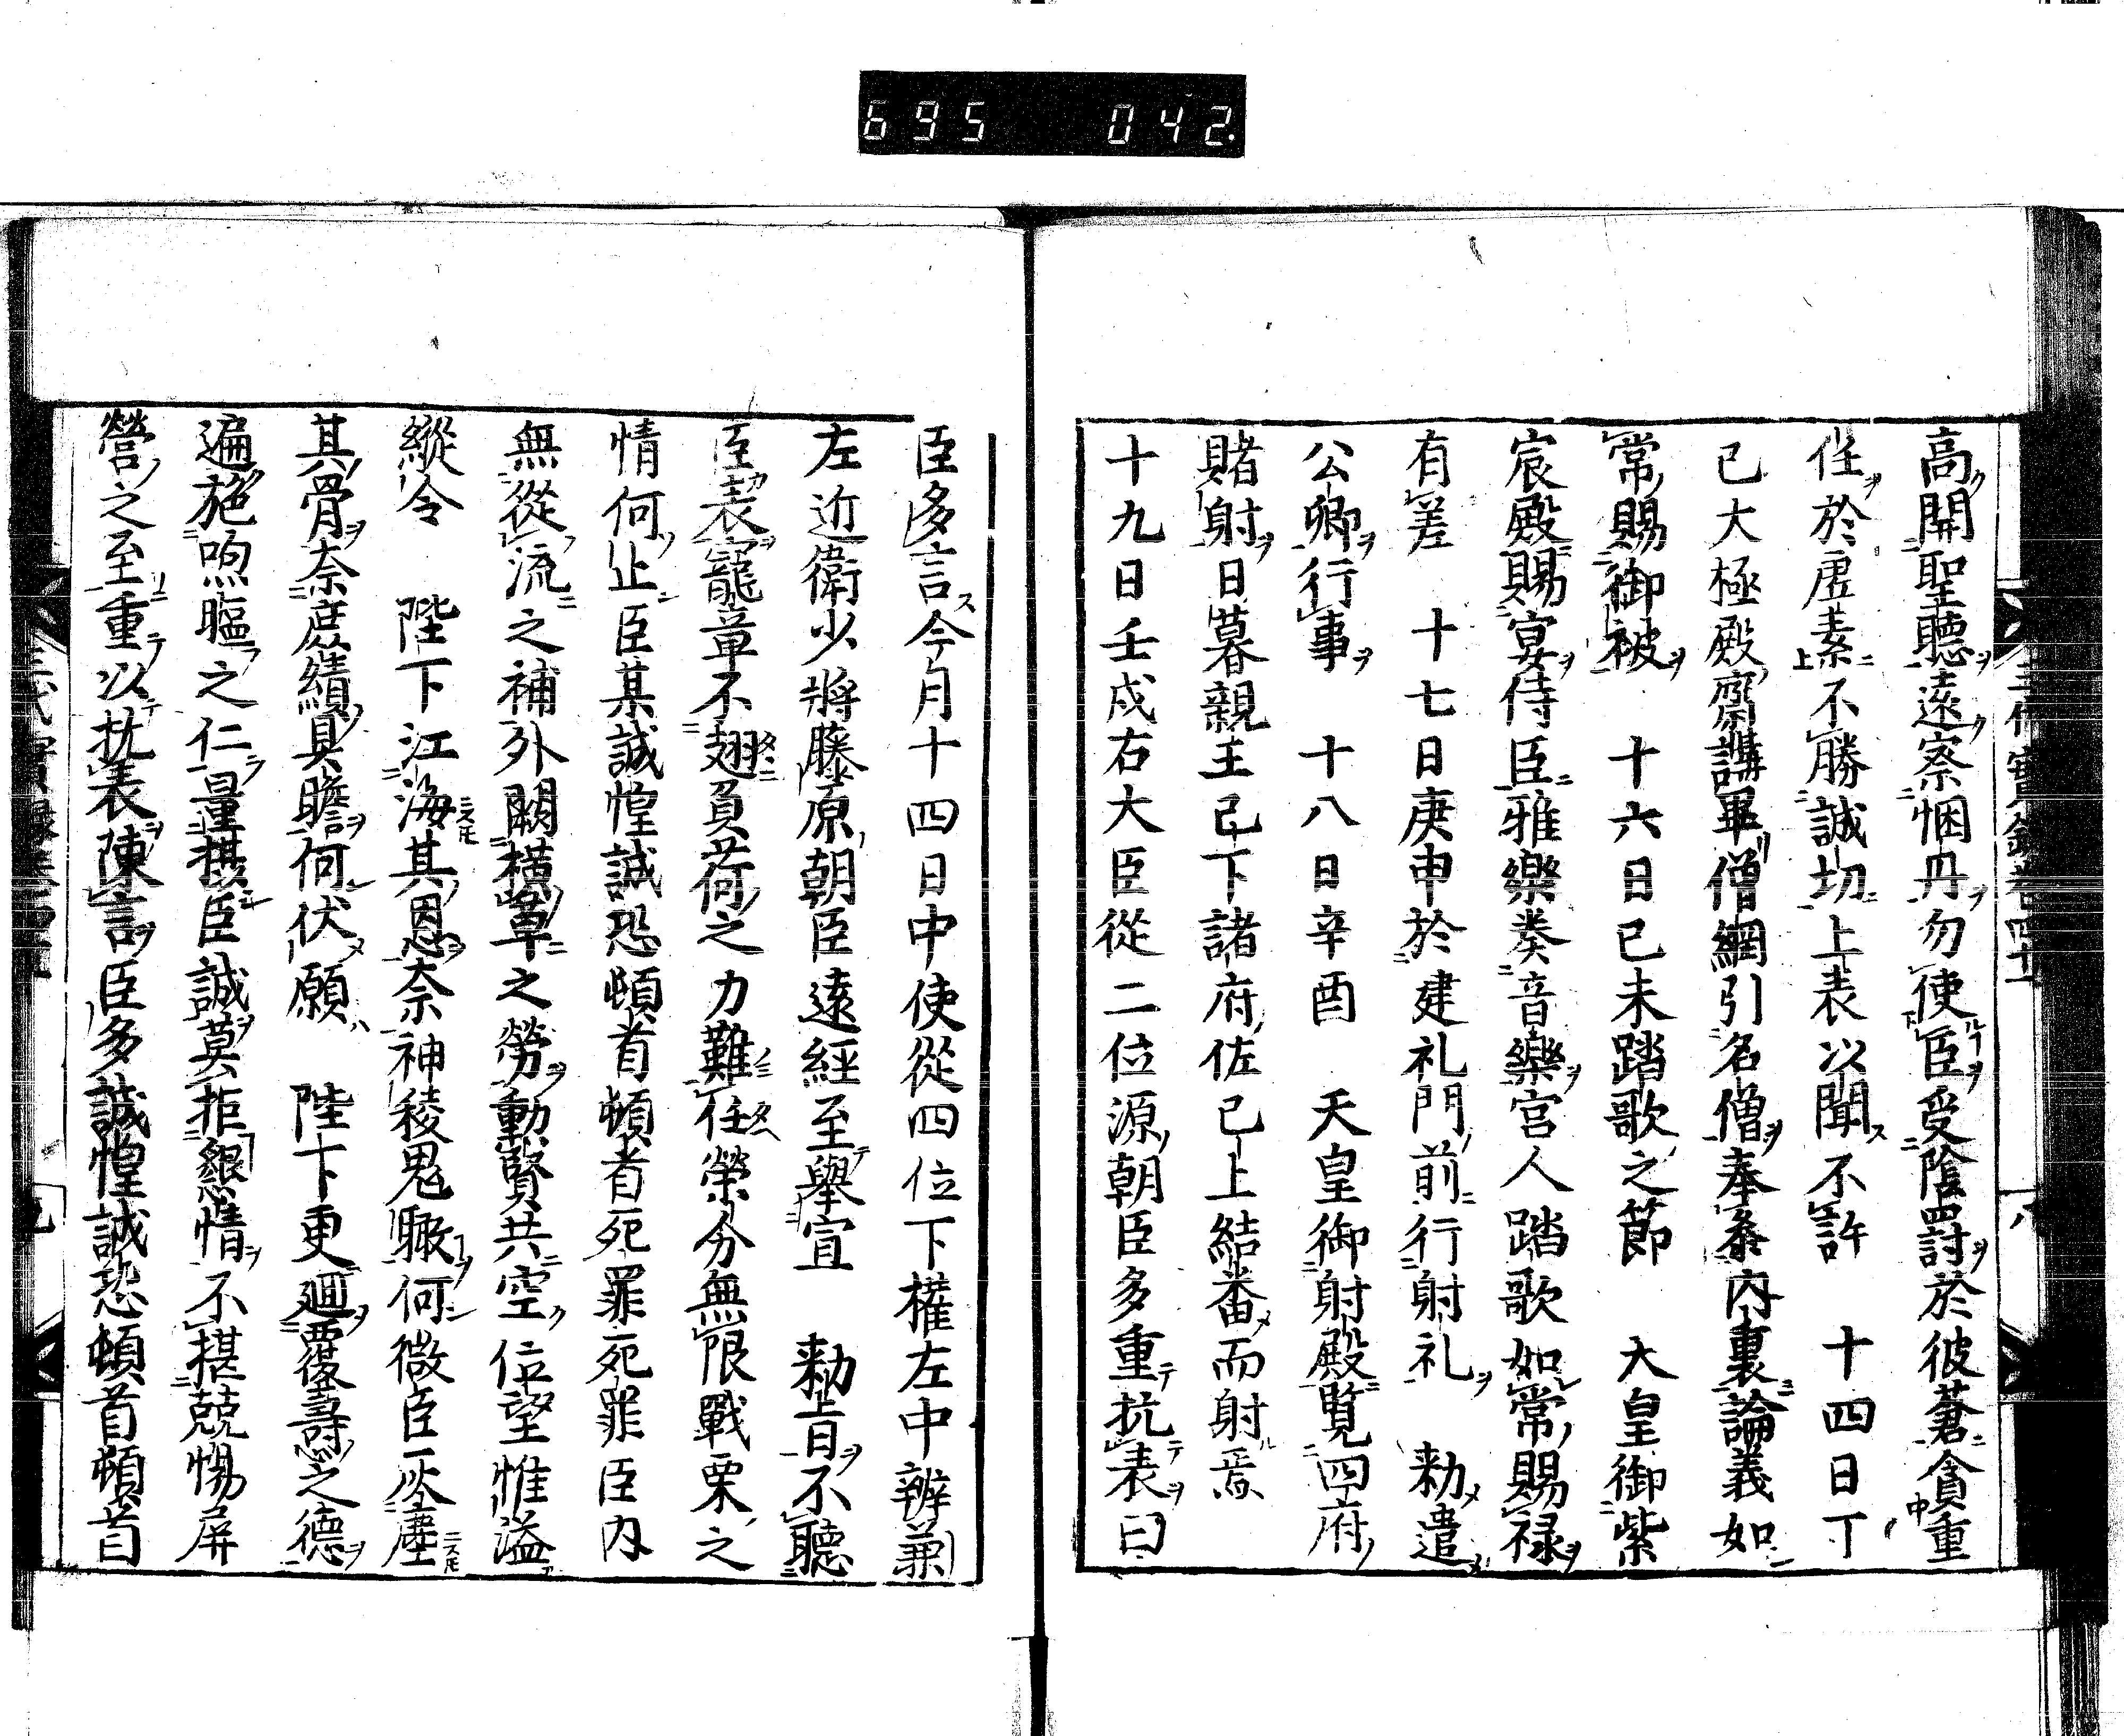 695 042
高開聖聽遠察悃丹勿使臣受陰罸於彼蒼貪重
任於虛素不勝誠切上表以聞不許　十四日丁
巳大極殿齋講畢僧綱引名僧奉參內裏論義如
常賜御被　十六日己未踏歌之節　天皇御紫
宸殿賜宴侍臣雅樂奏音樂宮人踏歌如常賜祿
有差　十七日庚申於建礼門前行射礼　勑遣
公卿行事　十八日辛酉　天皇御射殿覽四府
賭射日暮親王已下諸府佐已上結番而射焉
十九日壬戌右大臣從二位源朝臣多重抗表曰
臣多言今月十四日中使從四位下權左中辨兼
左近衛少將藤原朝臣遠經至舉宣　勑旨不聽
臣表寵章不翅負荷之力難任榮分無限戰栗之
情何止臣某誠惶誠恐頓首頓首死罪死罪臣內
無從流之補外闕橫草之勞動賢共空位望惟溢
縱令　陛下江海其恩奈神稜鬼瞰何微臣一塵
其骨奈庶績具瞻何伏願　陛下更廻覆壽之德
遍施呴嫗之仁量揆臣誠莫拒懇情不堪兢惕屏
營之至重以抗表陳言臣多誠惶誠恐頓首頓首